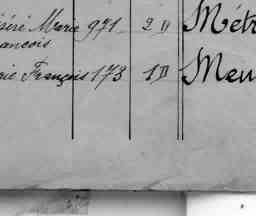 éséré Marie 971 2 " Métr
rancois
rie François 173 1 " Meu